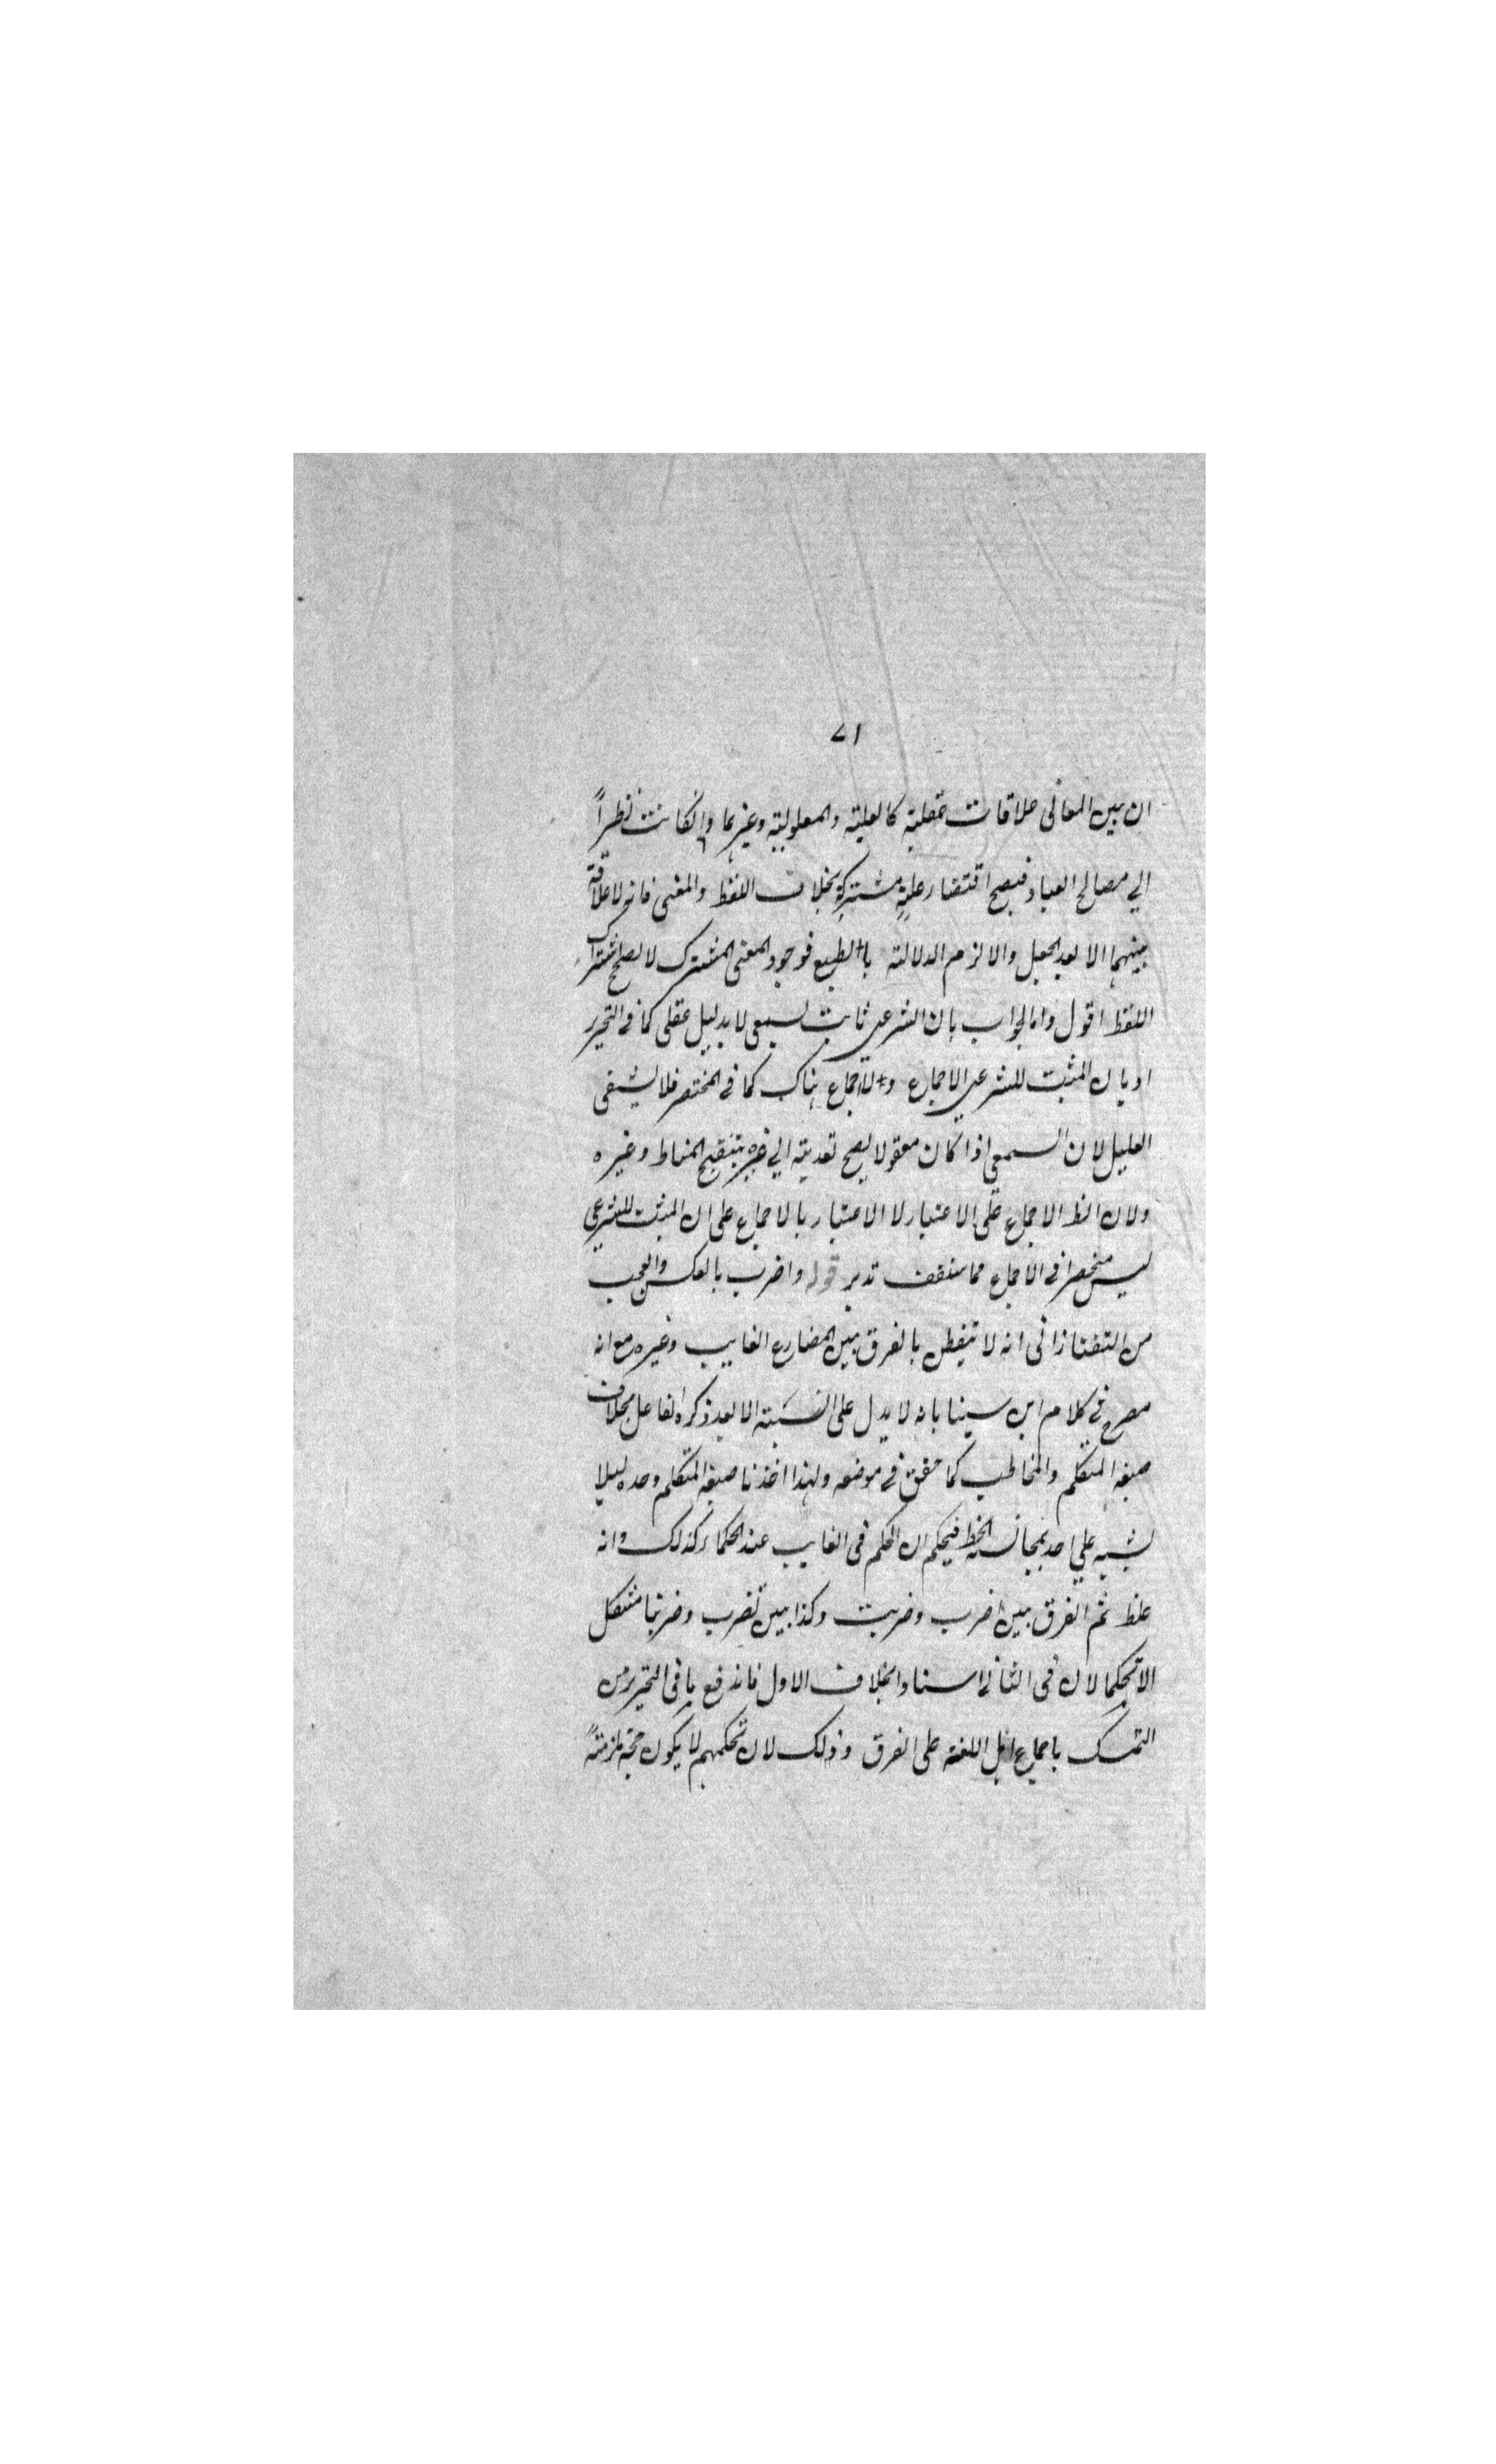 ٧١
ان بين المعانى علاقات عقلية كالعلية والمعلولية وغيرهما وانكانت نظراً
الي مصالح العباد فيصح اقتضاء علية مشتركة بخلاف اللفظ والمعنى فانه لا علاقة
بينهما الا بعد الجعل والا لزم الدلالة بالطبع فوجود المعنى المشترك لا يصلح اشتراك
اللفظ اقول واما الجواب بان الشرعي ثابت لسمعى لا بدليل عقلى كما في التحرير
او بان المثبت للشرعي الاجماع ولا اجماع هناك كما في المختصر فلا يشفى
العليل لان السمعى اذا كان معقولا يصح تعديته الي غيره بتنقيح المناط وغيره
ولان الاجماع على الاعتبار لا الاعتبار بالاجماع على ان المثبت للشرعي
ليس منحصرا في الاجماع مما ستقف تدبر قوله واضرب بالعكس والعجب
من التفتازانى انه لا يتفطن بالفرق بين المضارع الغايب وغيره مع انه
مصرح في كلام ابن سينا بانه لا يدل على النسبة الا بعد ذكر الفاعل بخلاف
صيغة المتكلم والمخاطب كما حقق في موضعه ولهذا اخذنا صيغة المتكلم وحده ليلا
يشبه علي احد بمجانسة الخط فيحكم ان الحكم فى الغايب عند الحكماء كذلك وانه
غلط ثم الفرق بين اضرب وضربت وكذا بين نضرب وضربنا مشكل
الا تحكما لان فى الثانى اسنادا بخلاف الاول فاندفع ما فى التحرير من
التمسك باجماع اهل اللغة على الفرق وذلك لان تحكمهم لا يكون حجة ملزمة